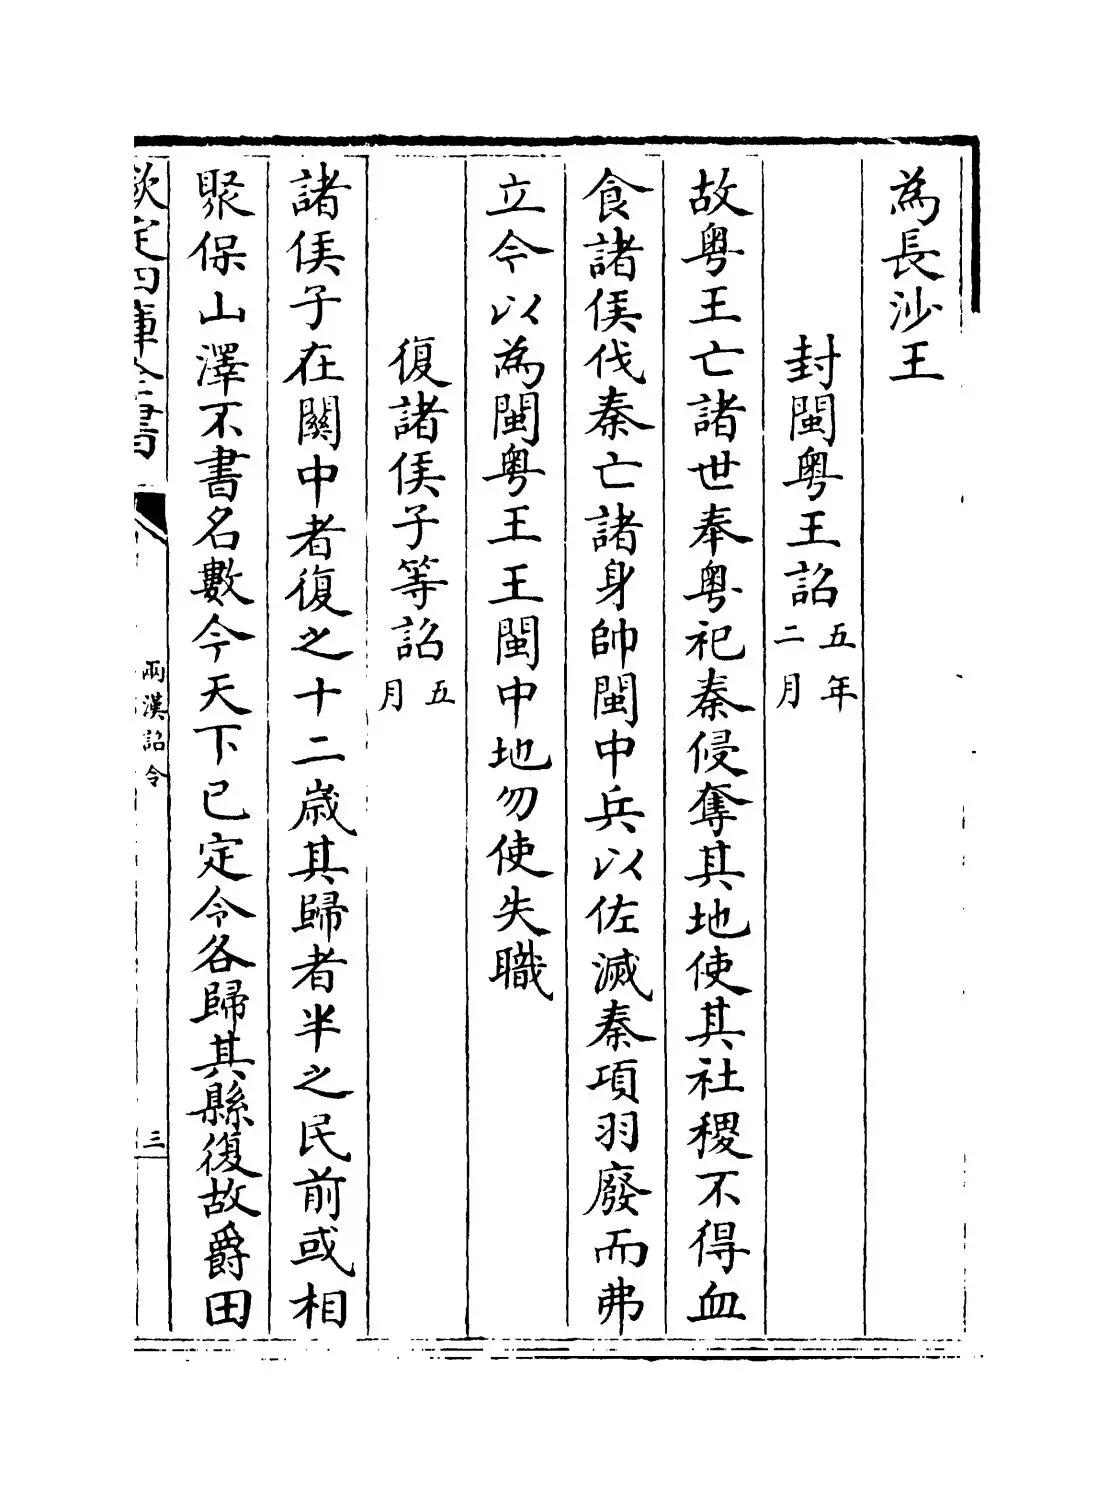 為長沙王
封閩粤王詔五年二月
故粤王亡諸世奉粤祀秦侵奪其地使其社稷不得血
食諸侯伐秦亡諸身帥閩中兵以佐滅秦項羽廢而弗
立今以為閩粤王王閩中地勿使失職
復諸侯子等詔五月
諸侯子在關中者復之十二歳其歸者半之民前或相
聚保山澤不書名數今天下已定令各歸其縣復故爵田
欽定四庫全書
兩漢詔令
三